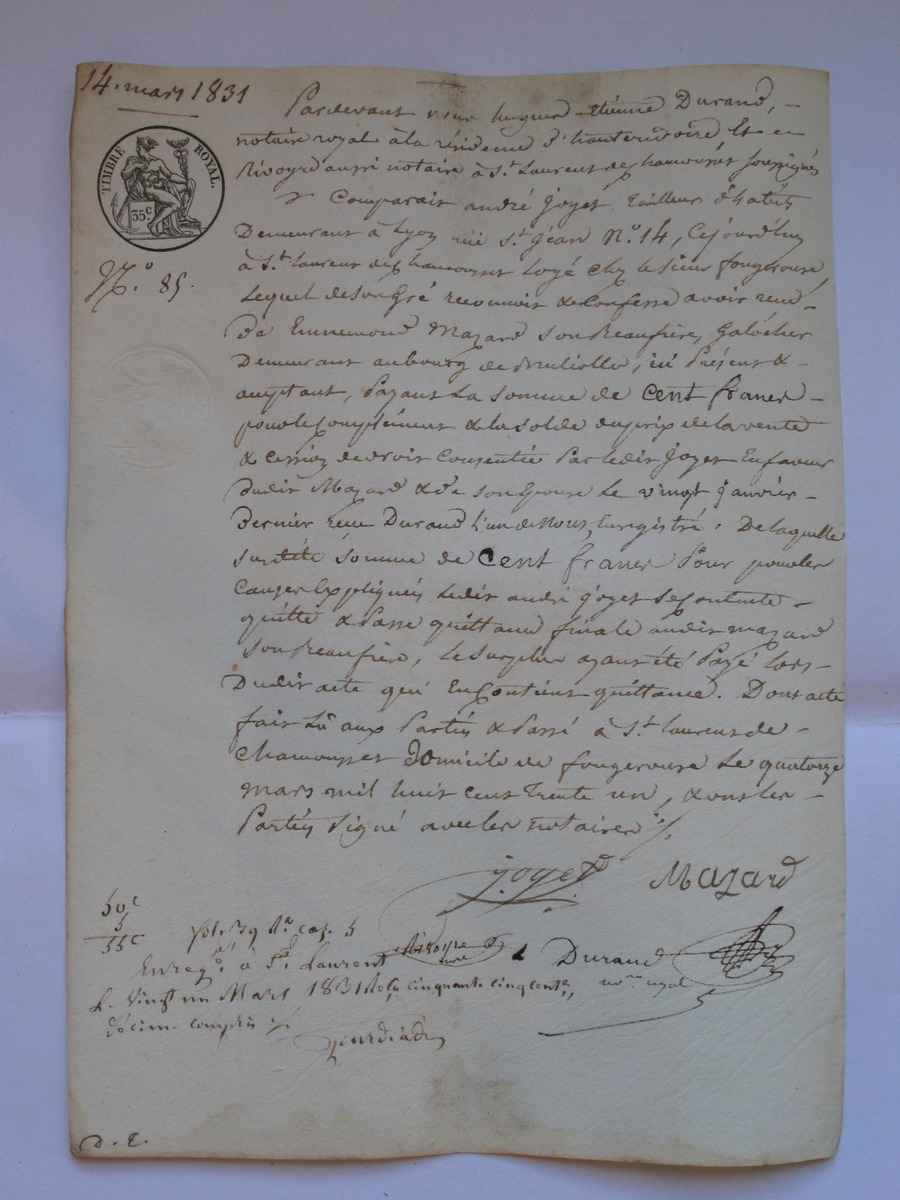 14. mars 1831
Pardevant nous hugues étienne Durand,
notaire royal à la résidence d'hauterivoire Et
Rivoyre aussi notaire à St. Laurent de chamousset soussignés
TIMBRE ROYAL.
35c
Comparait andré joyet, tailleur d'habits
Demeurant à Lyon rue St. jean No. 14, Cejourd'huy
à St. Laurent de chamousset Logé chez le sieur fougerouse
No. 85.
Lequel de son Gré reconnoit & Confesse avoir reçu
Ennemond Mazard son Beaufrère, Galocher
Demeurant au bourg de Brullolle, ici Présent &
acceptant, Payant La somme de cent francs
pour le Complément & la solde du prix de la vente
& cession de droit Consentie Par ledit joyet En faveur
Dudit Mazard & de son Epouse Le vingt janvier
Dernier reçu Durand l'un de Nous, Enregistré ; De laquelle
susdite somme de cent francs Pour pour les
Causes Expliquées ledit andré joyet se Contente
quitte & Passe quittance finale audit mazard
son Beaufrère, Le Surplus ayant été Payé Lors
Dudit acte qui En Contient quittance. Dont acte
fait Lû aux Parties & Passé à St. Laurent de
chamousset Domicile de fougerouse Le quatorze
mars mil huit cent trente un, & ont les
Parties Signé avec les notaires ./.
joyet Mazard
50c
5
55c
fol. 39 Ro. cas. 5
Rivoyre Durand
nore. royal
Enregé. à St. Laurent
Le Vingt un Mars 1831 Reçu cinquante cinq cents.,
décim. compris ./.
D. E.